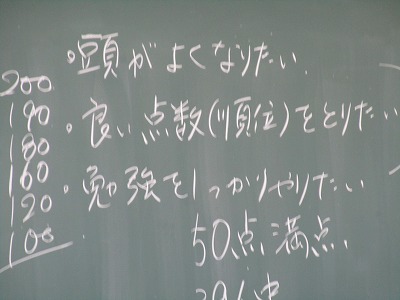 ・頭がよくなりたい.
・良い点数(順位)をとりたい
・勉強をしっかりやりたい
50点満点
200
190
180
160
120
100